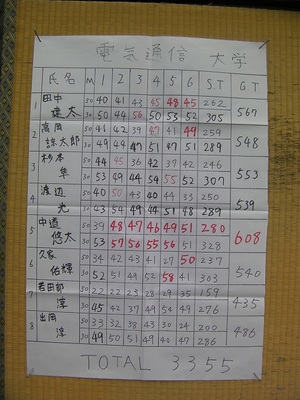 電気通信 大学
氏名 M 1 2 3 4 5 6 S.T G.T
1 田中 50 40 41 43 45 48 45 262
建太 30 50 44 56 50 53 52 305 567
2 高岡 50 41 42 39 47 41 49 259
諒太郎 30 49 49 47 51 47 51 289 548
3 杉本 50 44 45 36 42 37 42 246
隼 30 53 49 44 54 55 52 307 553
4 渡辺 50 40 50 43 40 44 33 250
光 30 43 54 49 44 51 48 289 539
5 中道 50 39 48 47 46 49 51 280
悠太 30 53 57 56 55 56 51 328 608
6 久家 50 34 42 43 41 27 50 237
佑輝 30 52 51 49 52 58 41 303 540
7 若田部 50 22 22 23 28 29 35 159
淳 30 45 42 37 49 54 49 276 435
8 出岡 50 33 32 38 43 30 24 200
淳 30 49 50 51 49 40 47 286 486
TOTAL 3355